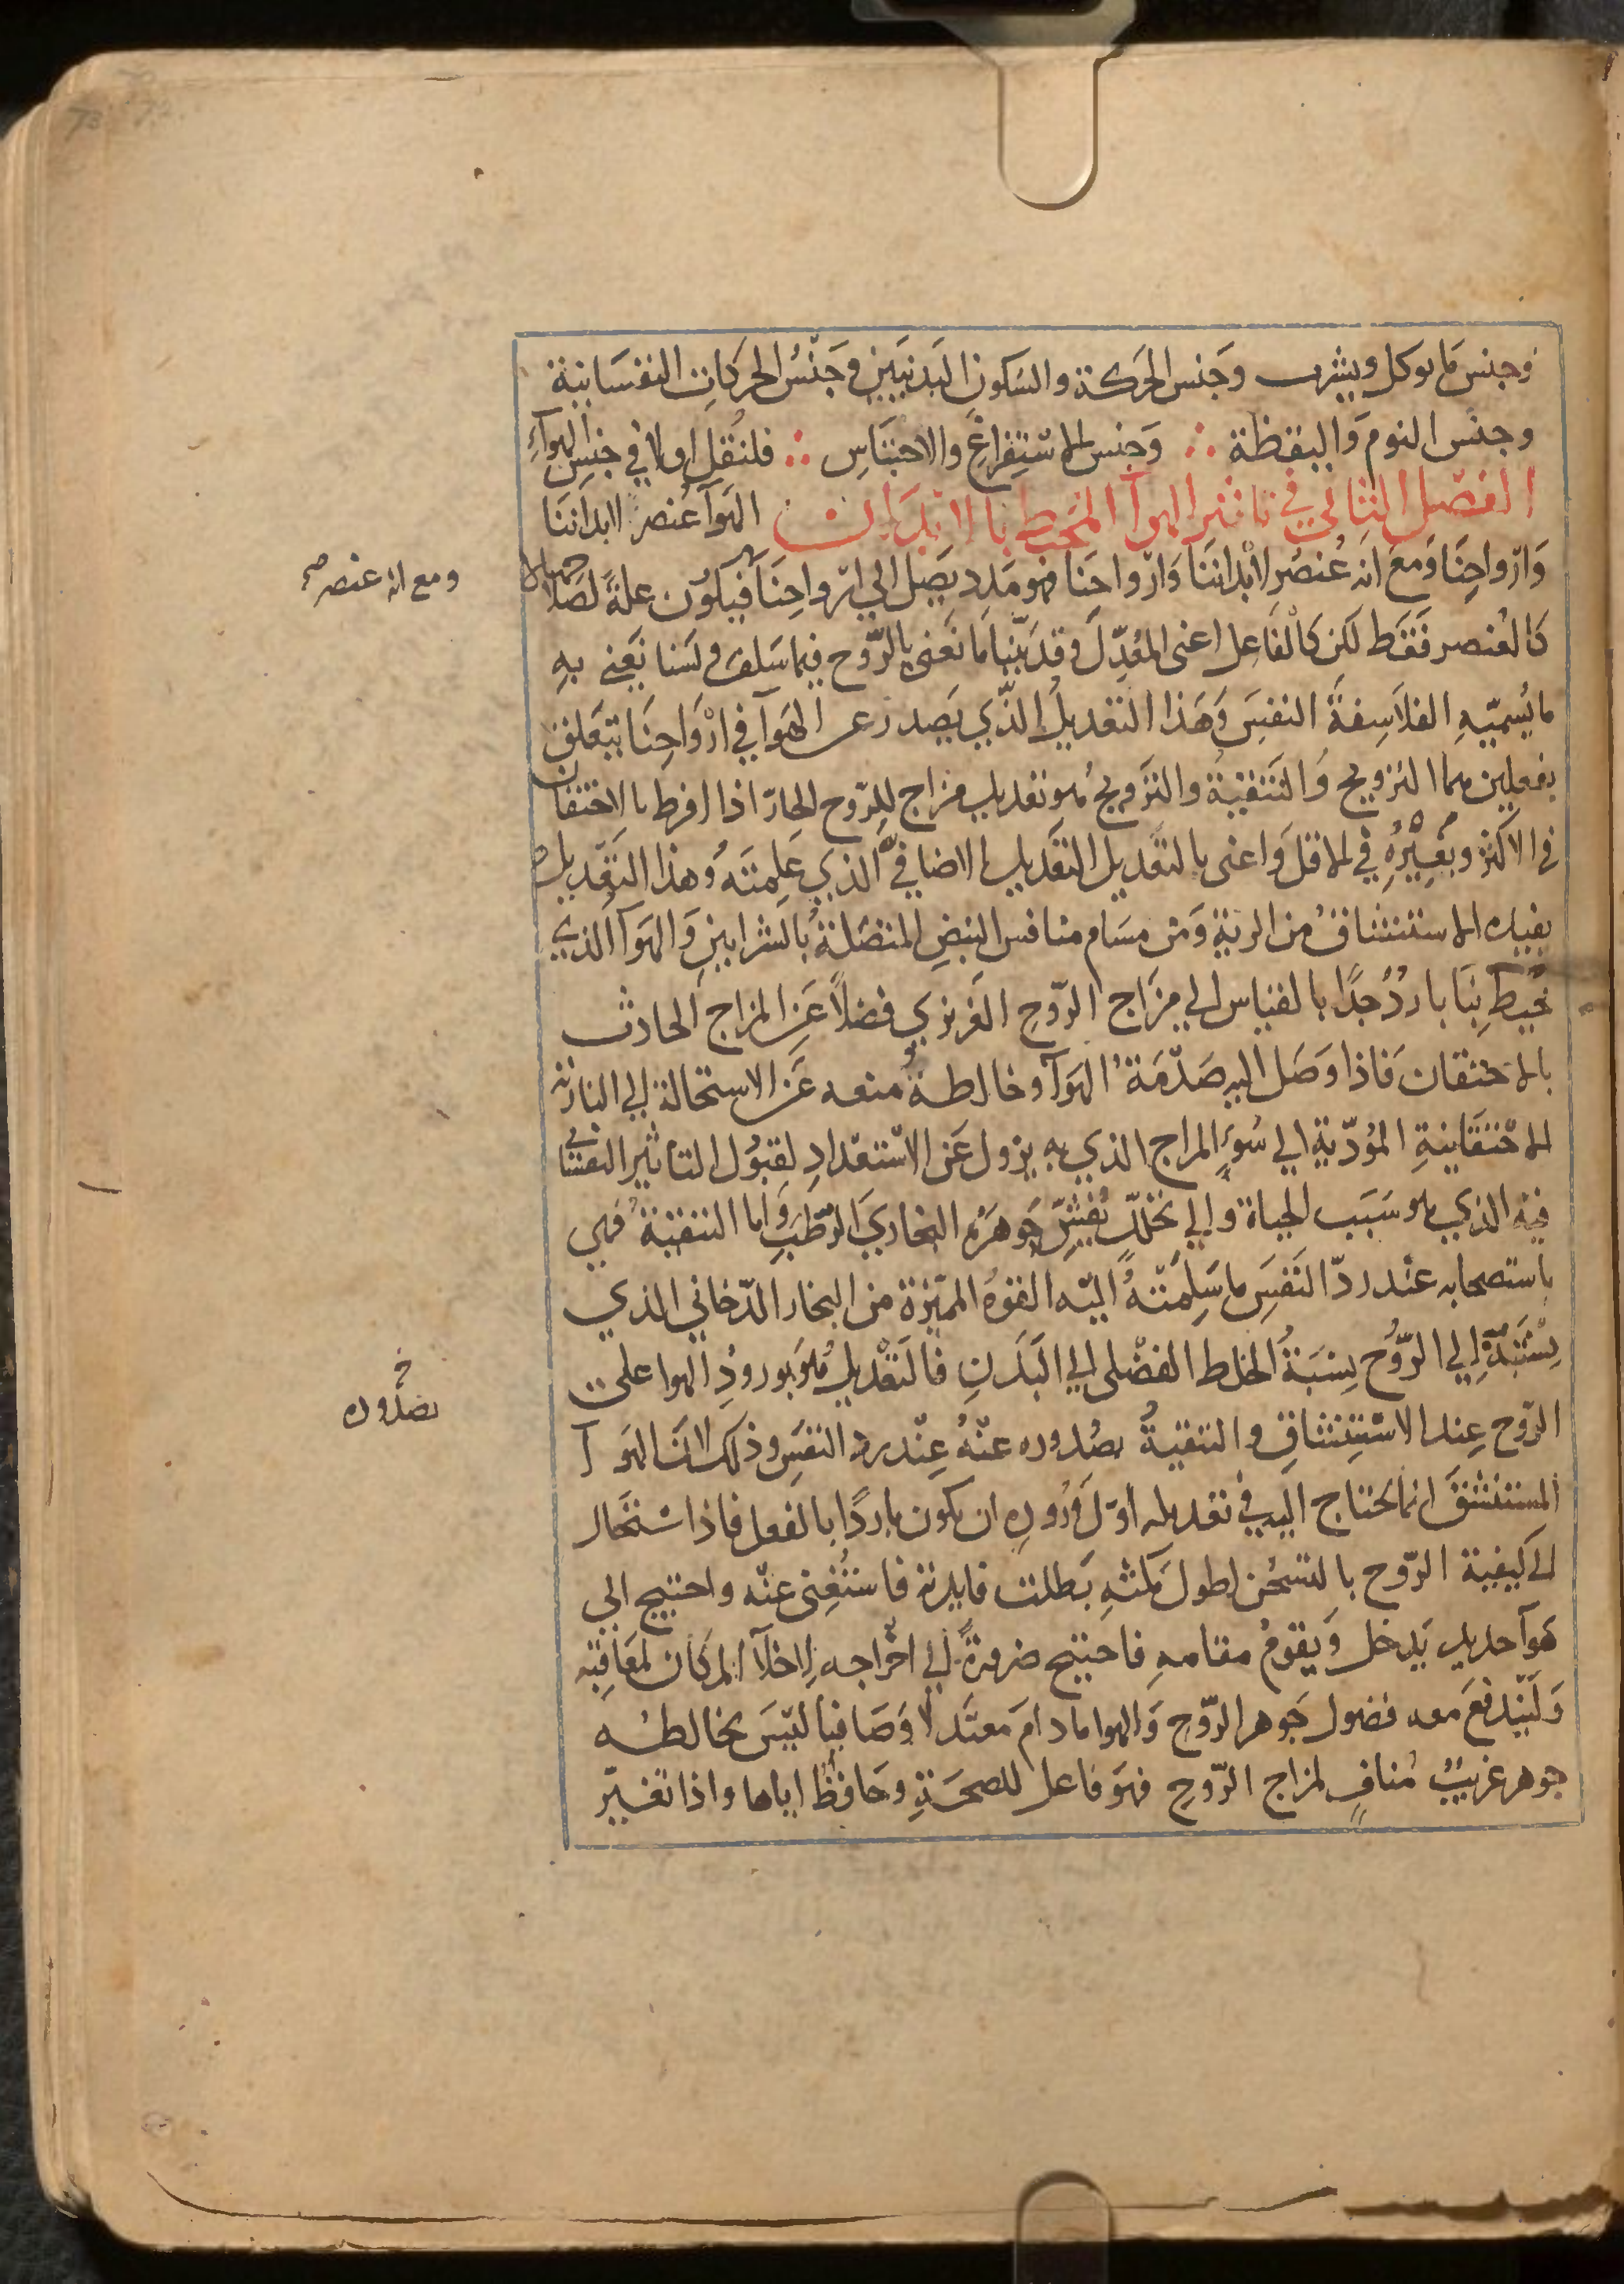 وجنس ما يوكل ويشرب وجنس الحركة والسكون البدنيين وجنس الحركات النفسانية
وجنس النوم واليقظة ∴ وجنس الاستفراغ والاحتباس ∴ فلنقل اولا في جنس الهواء
الفصل الثاني في تاثير الهوآ المحيط بالابدان الهوآ عنصر لابداننا
وارواحنا ومع انه عنصر لابداننا وارواحنا فهو مدد يصل الي ارواحنا فيكون علة لصلاحها لا
كالعنصر فقط لكن كالفاعل اعنى المعدل وقد بينا ما نعنى بالروح فيما سلف ولسنا نعنى به
ما يسميه الفلاسفة النفس وهذا التعديل الذي يصدر عن الهوآ في ارواحنا يتعلق
بفعلين هما الترويح والتنقية والترويح هو تعديل مزاج الروح الحار اذا افرط بالاحتقان
في الاكثر وبغيره في الاقل واعنى بالتعديل التعديل الاضافي الذي علمته وهذا التعديل
يفيده الاستنشاق من الرية ومن مسام منافس النبض المتصلة بالشرايين والهوآ الذي
يحيط بنا بارد جدا بالقياس الي مزاج الروح الغريزي فضلا عن المزاج الحادث
بالاحتقان فاذا وصل اليه صدمة الهوآ وخالطه منعه عن الاستحالة الي النارية
الاحتقانية المؤدية الي سوء المزاج الذي به يزول عن الاستعداد لقبول التأثير النفساني
فيه الذي هو سبب الحياة والي تحلل نفس جوهره البخاري الرطب واما التنقية فهي
باستصحابه عند رد النفس ما سلمته اليه القوة المميزة من البخار الدخاني الذي
نسبته الي الروح نسبة الخلط الفضلى الي البدن فالتعديل هو بورود الهوا على
الروح عند الاستنشاق والتنقية بصدوره عنه عند رد النفس وذلك لان الهوآ
المستنشق انما يحتاج اليه في تعديله اول وروده ان يكون باردا بالفعل فاذا استحال
الي كيفية الروح بالتسخن لطول مكثه بطلت فايدته فاستغنى عنه واحتيج الي
هوآ جديد يدخل ويقوم مقامه فاحتيج ضرورة الي اخراجه لاخلآ المكان لمعاقبه
وليندفع معه فضول جوهر الروح والهوا ما دام معتدلا وصافيا ليس يخالطه
جوهر غريب مناف لمزاج الروح فهو فاعل للصحة وحافظ اياها واذا تغير
ومع انه عنصر صح
خ
بصدوره